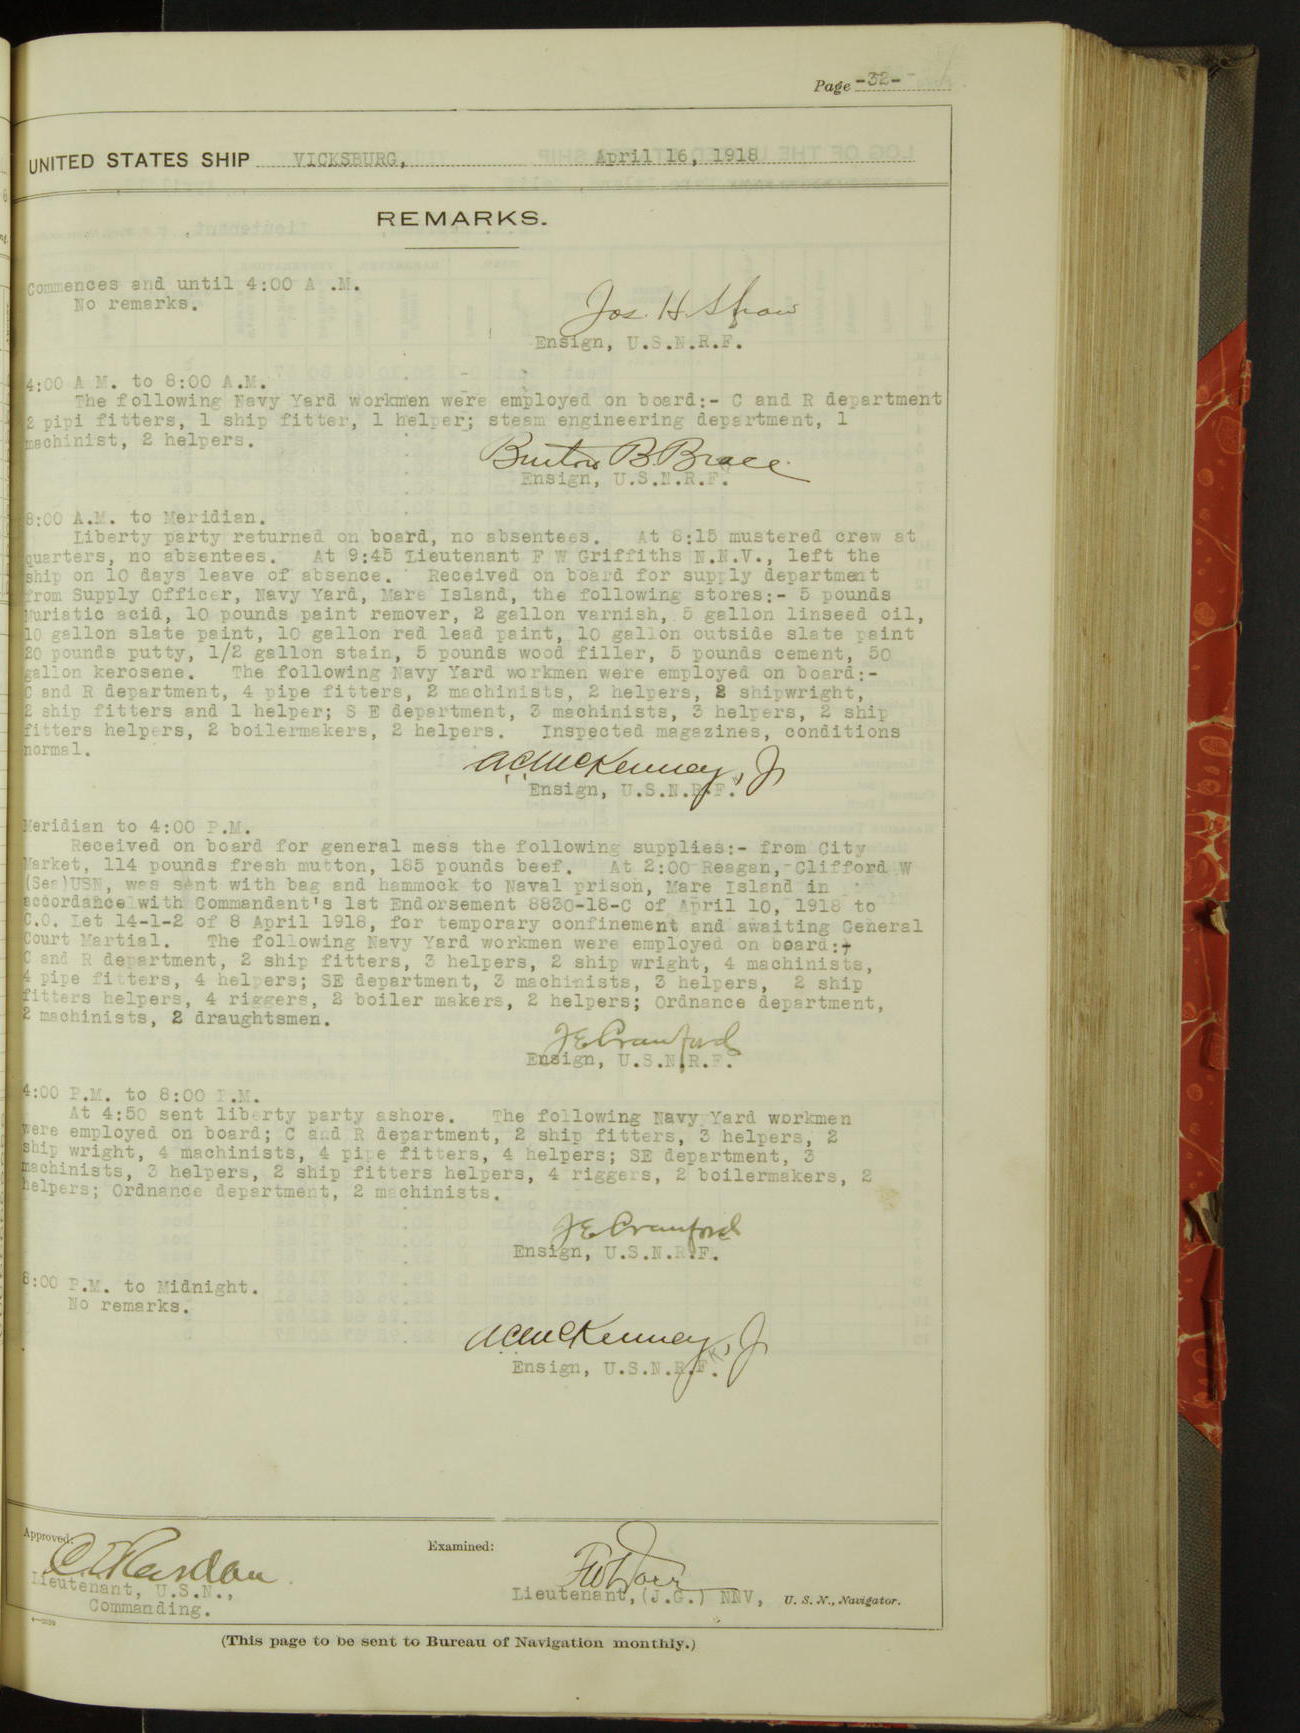 Page -32-
UNITED STATES SHIP VICKSBURG, April 16, 1918
REMARKS.
Commences and until 4:00 A .M.
No remarks.
Jos. H. Shaw
Ensign, U.S.N.R.F.
4:00 A M. to 8:00 A.M.
The following Navy Yard workmen were employed on board:- C and R department
2 pipi fitters, 1 ship fitter, 1 helper; steam engineering department, 1
machinist, 2 helpers.
Burton B. Brace.
Ensign, U.S.N.R.F.
8:00 A.M. to Meridian.
Liberty party returned on board, no absentees. At 8:15 mustered crew at
quarters, no absentees. At 9:45 Lieutenant F W Griffiths N.N.V., left the
ship on 10 days leave of absence. Received on board for supply department
from Supply Officer, Navy Yard, Mare Island, the following stores:- 5 pounds
Muriatic acid, 10 pounds paint remover, 2 gallon varnish, 5 gallon linseed oil,
10 gallon slate paint, 10 gallon red lead paint, 10 gallon outside slate paint
20 pounds putty, 1/2 gallon stain, 5 pounds wood filler, 5 pounds cement, 50
gallon kerosene. The following Navy Yard workmen were employed on board:-
C and R department, 4 pipe fitters, 2 machinists, 2 helpers, 2 shipwright,
2 ship fitters and 1 helper; S E department, 3 machinists, 3 helpers, 2 ship
fitters helpers, 2 boilermakers, 2 helpers. Inspected magazines, conditions
normal.
A C McKenney, Jr
Ensign, U.S.N.R.F.
Meridian to 4:00 P.M.
Received on board for general mess the following supplies:- from City
Market, 114 pounds fresh mutton, 185 pounds beef. At 2:00 Reagan, Clifford W
(Sea)USN, was sent with bag and hammock to Naval prison, Mare Island in
accordance with Commandant's 1st Endorsement 8830-18-C of April 10, 1918 to
C.O. Let 14-1-2 of 8 April 1918, for temporary confinement and awaiting General
Court Martial. The following Navy Yard workmen were employed on board:-
C and R department, 2 ship fitters, 3 helpers, 2 ship wright, 4 machinists,
4 pipe fitters, 4 helpers; SE department, 3 machinists, 3 helpers, 2 ship
fitters helpers, 4 riggers, 2 boiler makers, 2 helpers; Ordnance department,
2 machinists, 2 draughtsmen.
J E Crawford
Ensign, U.S.N.R.F.
4:00 P.M. to 8:00 P.M.
At 4:50 sent liberty party ashore. The following Navy Yard workmen
were employed on board; C and R department, 2 ship fitters, 3 helpers, 2
ship wright, 4 machinists, 4 pipe fitters, 4 helpers; SE department, 3
machinists, 3 helpers, 2 ship fitters helpers, 4 riggers, 2 boilermakers, 2
helpers; Ordnance department, 2 machinists.
J E Crawford
Ensign, U.S.N.R.F.
8:00 P.M. to Midnight.
No remarks.
A C McKenney, Jr
Ensign, U.S.N.R.F.
Approved:
Lieutenant, U.S.N.,
Commanding.
Examined:
Lieutenant,(J.G.) NNV, U. S. N., Navigator.
(This page to be sent to Bureau of Navigation monthly.)